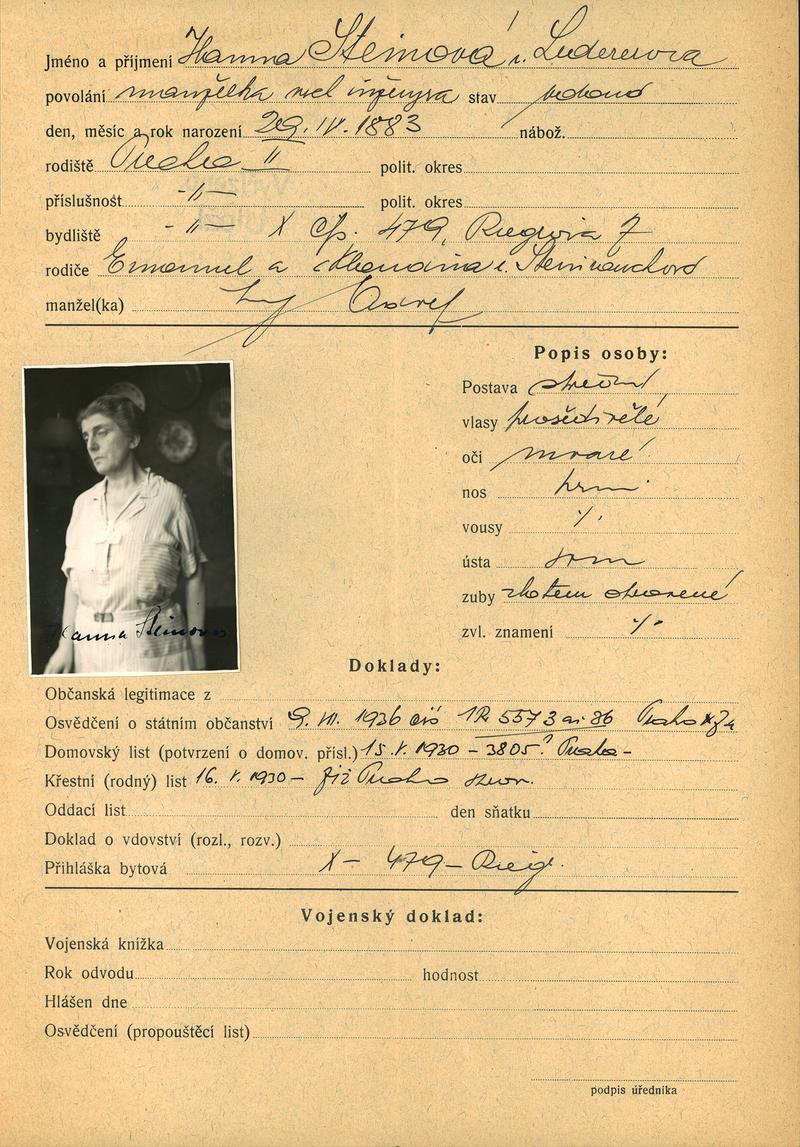 Jméno a příjmení Hanna Steinová r. Ledererova
povolání manželka vrch inženyra stav vdaná
den, měsíc a rok narození 29. IV. 1883 nábož.
rodiště Praha II polit. okres
příslušnost -"- polit. okres
bydliště -"- X čp. 479, Riegrova 7
rodiče Emanuel a r.
manžel(ka)
Popis osoby:
Postava střední
vlasy prošedivělé
oči tmavé
nos
vousy %
ústa
zuby zlatem
zvl. znamení %
Hanna Steinova
Doklady:
Občanská legitimace z
Osvědčení o státním občanství 9. VII. 1936 čís 5573 36 Praha
Domovský list (potvrzení o domov. přísl.) 15. V. 1930 - 3805 Praha -
Křestní (rodný) list 16. V. 1930 - Praha
Oddací list den sňatku
Doklad o vdovství (rozl., rozv.)
Přihláška bytová X - 479 - Riegr.
Vojenský doklad:
Vojenská knížka
Rok odvodu hodnost
Hlášen dne
Osvědčení (propouštěcí list)
podpis úředníka